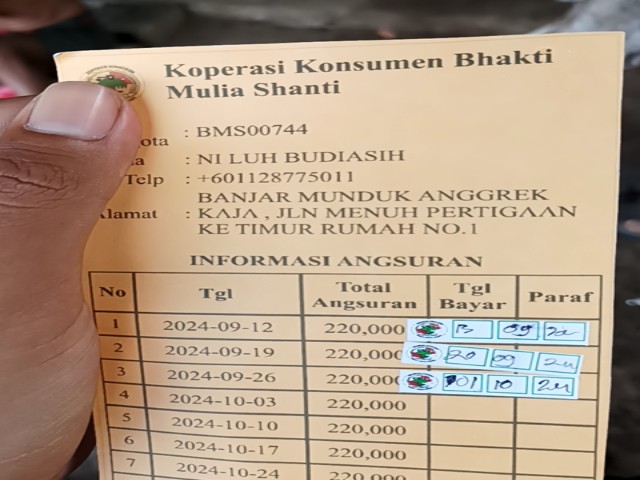 Koperasi Konsumen Bhakti
Mulia Shanti
ota : BMS00744
a : NI LUH BUDIASIH
Telp : +601128775011
Alamat : BANJAR MUNDUK ANGGREK
KAJA , JLN MENUH PERTIGAAN
KE TIMUR RUMAH NO.1
INFORMASI ANGSURAN
No Tgl Total Angsuran Tgl Bayar Paraf
1 2024-09-12 220,000 09
2 2024-09-19 220,000 20 09 24
3 2024-09-26 220,000 01 10 24
4 2024-10-03 220,000
5 2024-10-10 220,000
6 2024-10-17 220,000
7 2024-10-24 220,000